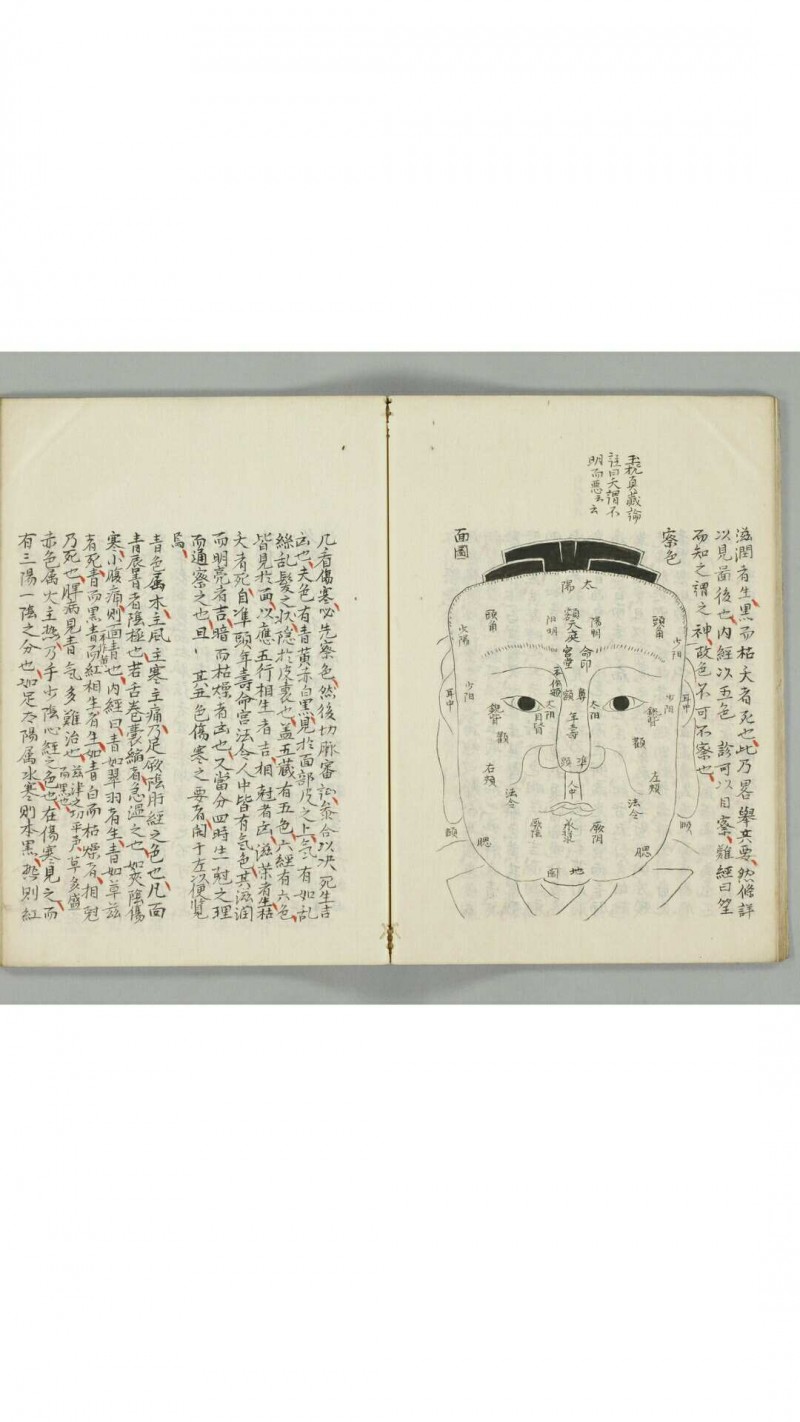 滋潤者生黑而枯夭者死也此乃畧舉其要然條詳
以見菌後也内經以五色 診可以目察難經曰望
而知之謂之神故色不可不察也
玉枕真藏論
註曰夭謂不
明而惡云云
察色
面圖
太陽
頭角
少陽
陽明
額天庭
陽明
頭角
少陽
命印
宮堂
少阳
耳中
銳眥
太阳
鼻
頞
年壽
太阳
目眥
銳眥
少阳
耳中
顴
準頭
顴
左頰
右頰
人中
法令
法令
承漿
厥阴
厥陰
頤
頤
腮
腮
地閣
凡看傷寒必先察色然後切脉審証參合以决死生吉
凶也夫色有青黃赤白黑見於面部皮之上氣有如乱
絲乱髮之状隐於皮裏也盖五藏有五色六經有六色
皆見於面以應五行相生者吉相尅者凶滋荣者生枯
夭者死自凖頭年壽命宮法令人中皆有氣色其滋润
而明亮者吉暗而枯燥者凶也又當分四時生尅之理
而通察之也且 其五色傷寒之要者闁于左以便覽
焉
青色属木主風主寒主痛乃足厥陰肝經之色也凡面
青唇青者陰極也若舌卷囊縮者急溫之也如夾陰傷
寒小腹痛則面青也内經曰青如翠羽者生青如草茲
者死青而黑青而紅相生者生如青白而枯燥者相尅
乃死也脾病見青氣多難治也
茲津之切平声草多盛
而黑也
赤色属火主热乃手少陰心經之色也在傷寒見之而
有三陽一陰之分也如足太陽属水寒則本黑热則紅